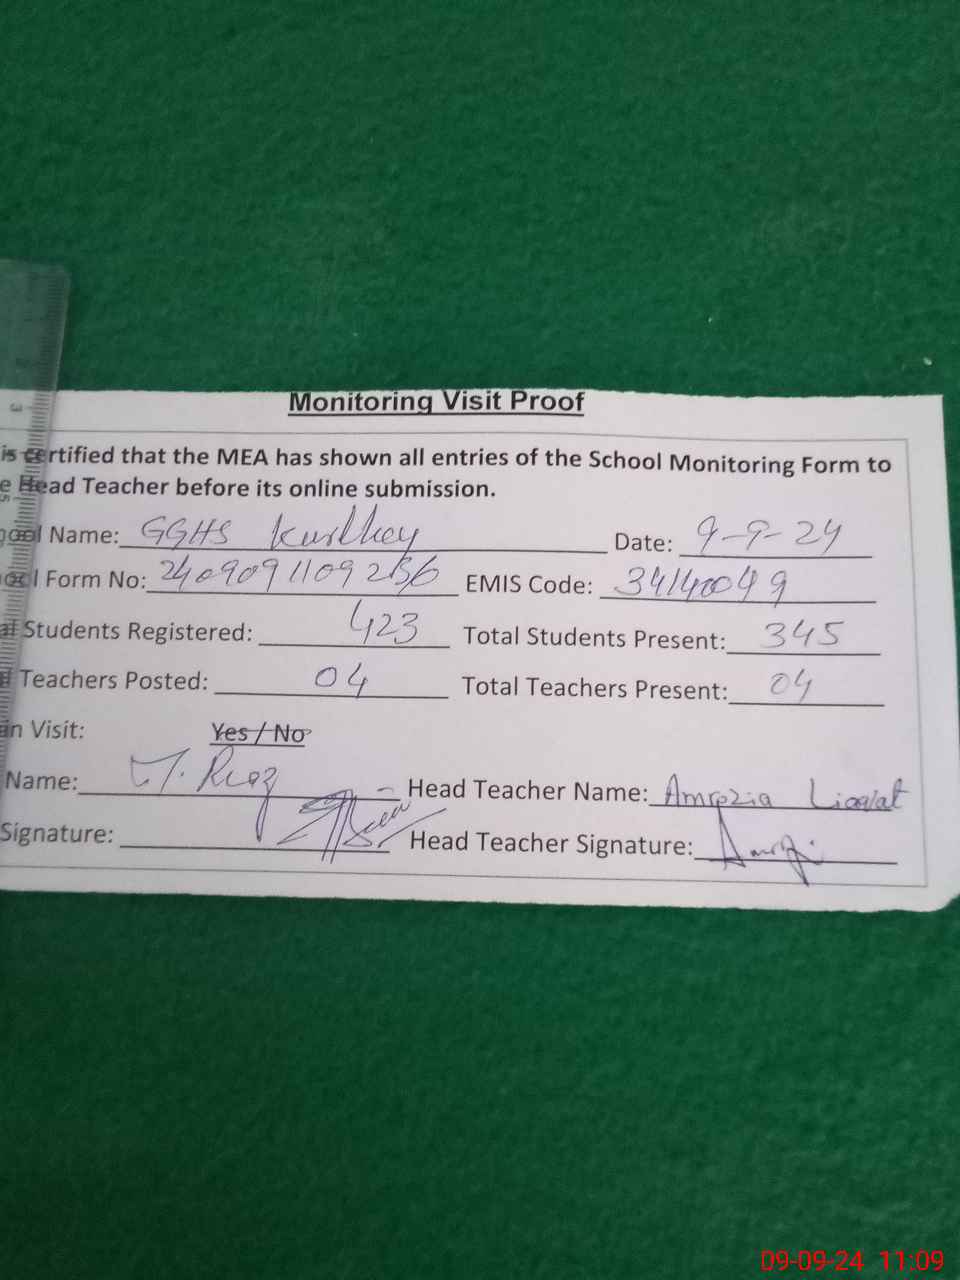 Monitoring Visit Proof
is certified that the MEA has shown all entries of the School Monitoring Form to
e Head Teacher before its online submission.
ool Name: GGHS Kurlkey Date: 9-9-24
ool Form No: 2409091109236 EMIS Code: 34140049
al Students Registered: 423 Total Students Present: 345
Teachers Posted: 04 Total Teachers Present: 04
in Visit: Yes / No
Name: Head Teacher Name: Amrozia Liaqat
Signature: Head Teacher Signature:
09-09-24 11:09